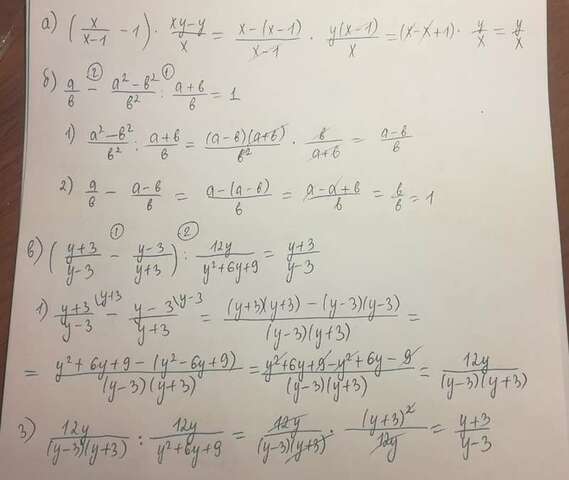 а) (x/(x-1) - 1) · (xy-y)/x = (x-(x-1))/(x-1) · y(x-1)/x = (x-x+1) · y/x = y/x
б) a/b -② (a²-b²)/b² :① (a+b)/b = 1
1) (a²-b²)/b² : (a+b)/b = (a-b)(a+b)/b² · b/(a+b) = (a-b)/b
2) a/b - (a-b)/b = (a-(a-b))/b = (a-a+b)/b = b/b = 1
в) ((y+3)/(y-3) -① (y-3)/(y+3)) :② 12y/(y²+6y+9) = (y+3)/(y-3)
1) (y+3)/(y-3) \y+3 - (y-3)/(y+3) \y-3 = ((y+3)(y+3) - (y-3)(y-3))/((y-3)(y+3)) =
= (y²+6y+9-(y²-6y+9))/((y-3)(y+3)) = (y²+6y+9-y²+6y-9)/((y-3)(y+3)) = 12y/((y-3)(y+3))
3) 12y/((y-3)(y+3)) : 12y/(y²+6y+9) = 12y/((y-3)(y+3)) · (y+3)²/12y = (y+3)/(y-3)